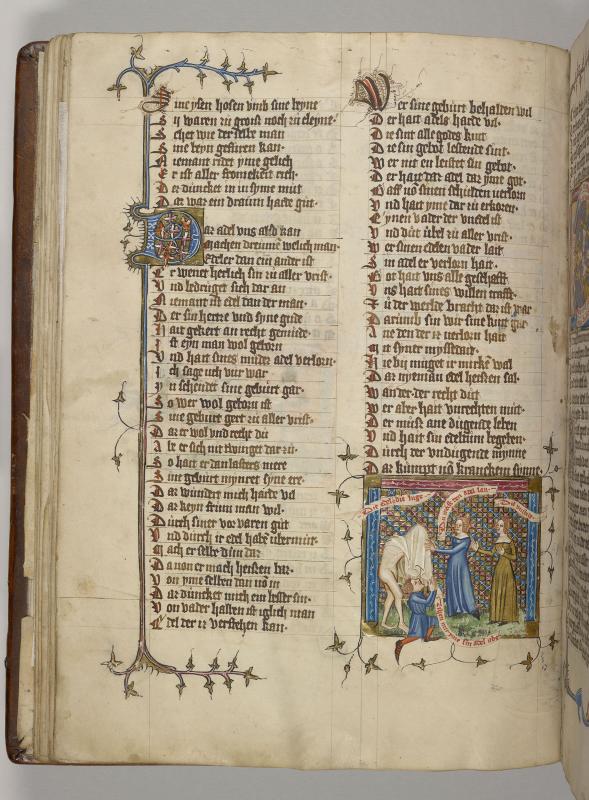 Sine ysen hosen vmb sine beyne
Si waren zu groiß noch zu cleyne
Secher wie der selbe man
Sine beyn gefuren kan
Niemant ridet yme gelich
Er ist aller fromekeit rich
Der duncket in in syme mut
Dar war ein draum harde gut
Dar adel vns also kan
machen dreume welich man
Edeler dan ein ander ist
Er wenet herlich sin zu aller vrist
Vnd bedruget sich dar an
Niemant ist edel dan der man
Der sin hertze vnd syne gude
Hait gekert an recht gemude
Ist eyn man wol geborn
Vnd hait sines mudes adel verlorn
Ich sage uch vur war
yn schendet sine geburt gar
So wer wol geborn ist
Sine geburt gert zu aller vrist
Dar er wol vnd recht du
Ab er sich nit twinget dar zu
So hait er dan lasters mere
Sine geburt mynret syne ere
Dar wundert mich harde vil
Dar keyn frum man wil
Durch siner vor varen gut
Vnd durch ir edel habe ubermut
Nach er selbe dun dar
Da von er mach heisten bar
Von yme selben dan von in
Dar duncket mich ein besser sin
Von vader halben ist iglich man
Edel der iz verstehen kan
Wer sine geburt behalden wil
Der hait adels harde vil
Die sint alle godes kint
Die sin gebot leistende sint
Wer nit en leistet sin gebot
Der hait dar adel dar yme got
Gaff von sinen schulden verlorn
Vnd hait yme dar zu erkorn
Eynen vader der vnedel ist
Vnd dut ubel zu aller vrist
Wer sinen edelen vader lait
Sin adel er verlorn hait
Got hait vns alle geschafft
Vns hait sines willen crafft
Zu der werlde bracht dar ist war
Darumb sin wir sine kint gar
Ane den der iz verlorn hait
Mit syner myssedait
Hie by muget ir mirken wal
Dar nyeman edel heisten sal
Wan der der recht dut
Wer aber hait vnrechten mut
Der muß ane dugende leben
Vnd hait sin edeltum begeben
Durch der vndugende mynne
Dar kumpt von kranckem synne